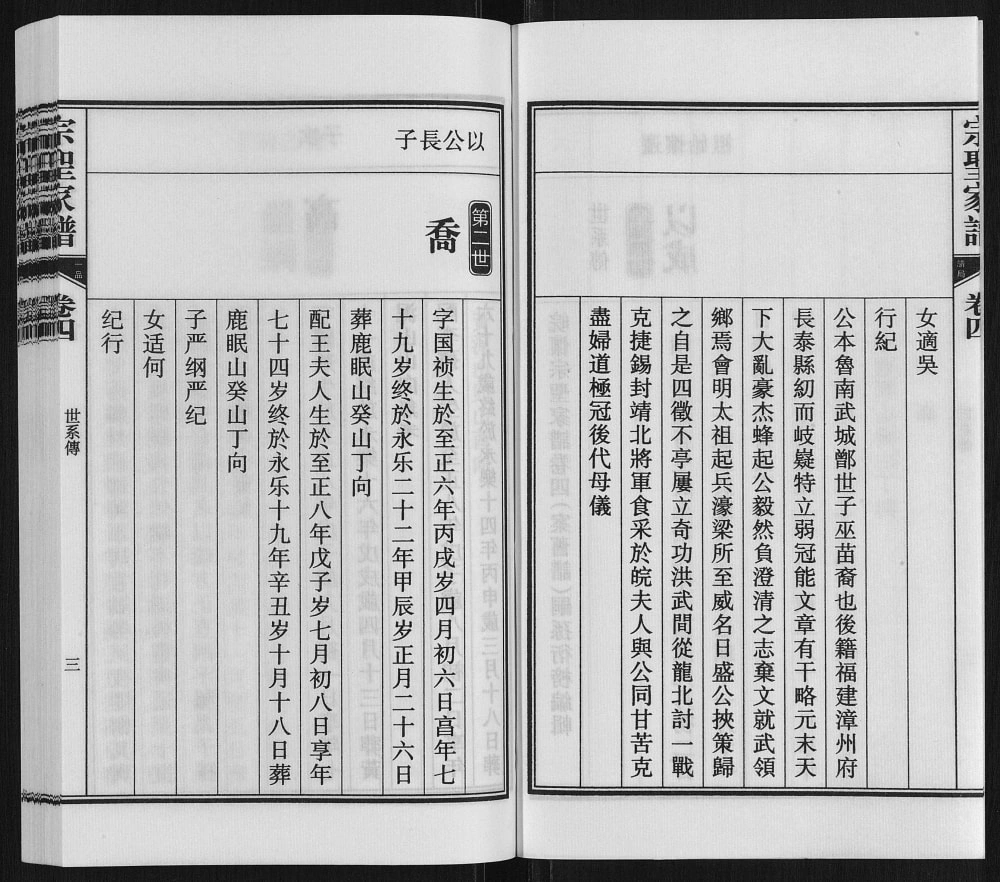 宗聖家譜
卷四
女適吳
行紀
公本魯南武城鄫世子巫苗裔也後籍福建漳州府
長泰縣紉而岐嶷特立弱冠能文章有干略元末天
下大亂豪杰蜂起公毅然負澄清之志棄文就武領
鄉焉會明太祖起兵濠梁所至威名日盛公挾策歸
之自是四徵不亭屢立奇功洪武間從龍北討一戰
克捷錫封靖北將軍食采於皖夫人與公同甘苦克
盡婦道極冠後代母儀
以公長子
第二世
喬
字国祯生於至正六年丙戌岁四月初六日亯年七
十九岁终於永乐二十二年甲辰岁正月二十六日
葬鹿眠山癸山丁向
配王夫人生於至正八年戊子岁七月初八日享年
七十四岁终於永乐十九年辛丑岁十月十八日葬
鹿眠山癸山丁向
子严纲严纪
女适何
纪行
宗聖家譜
一品
卷四
世系傳
三